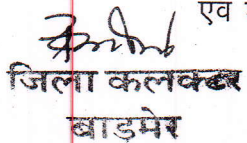 एव
जिला कलक्टर
बाड़मेर